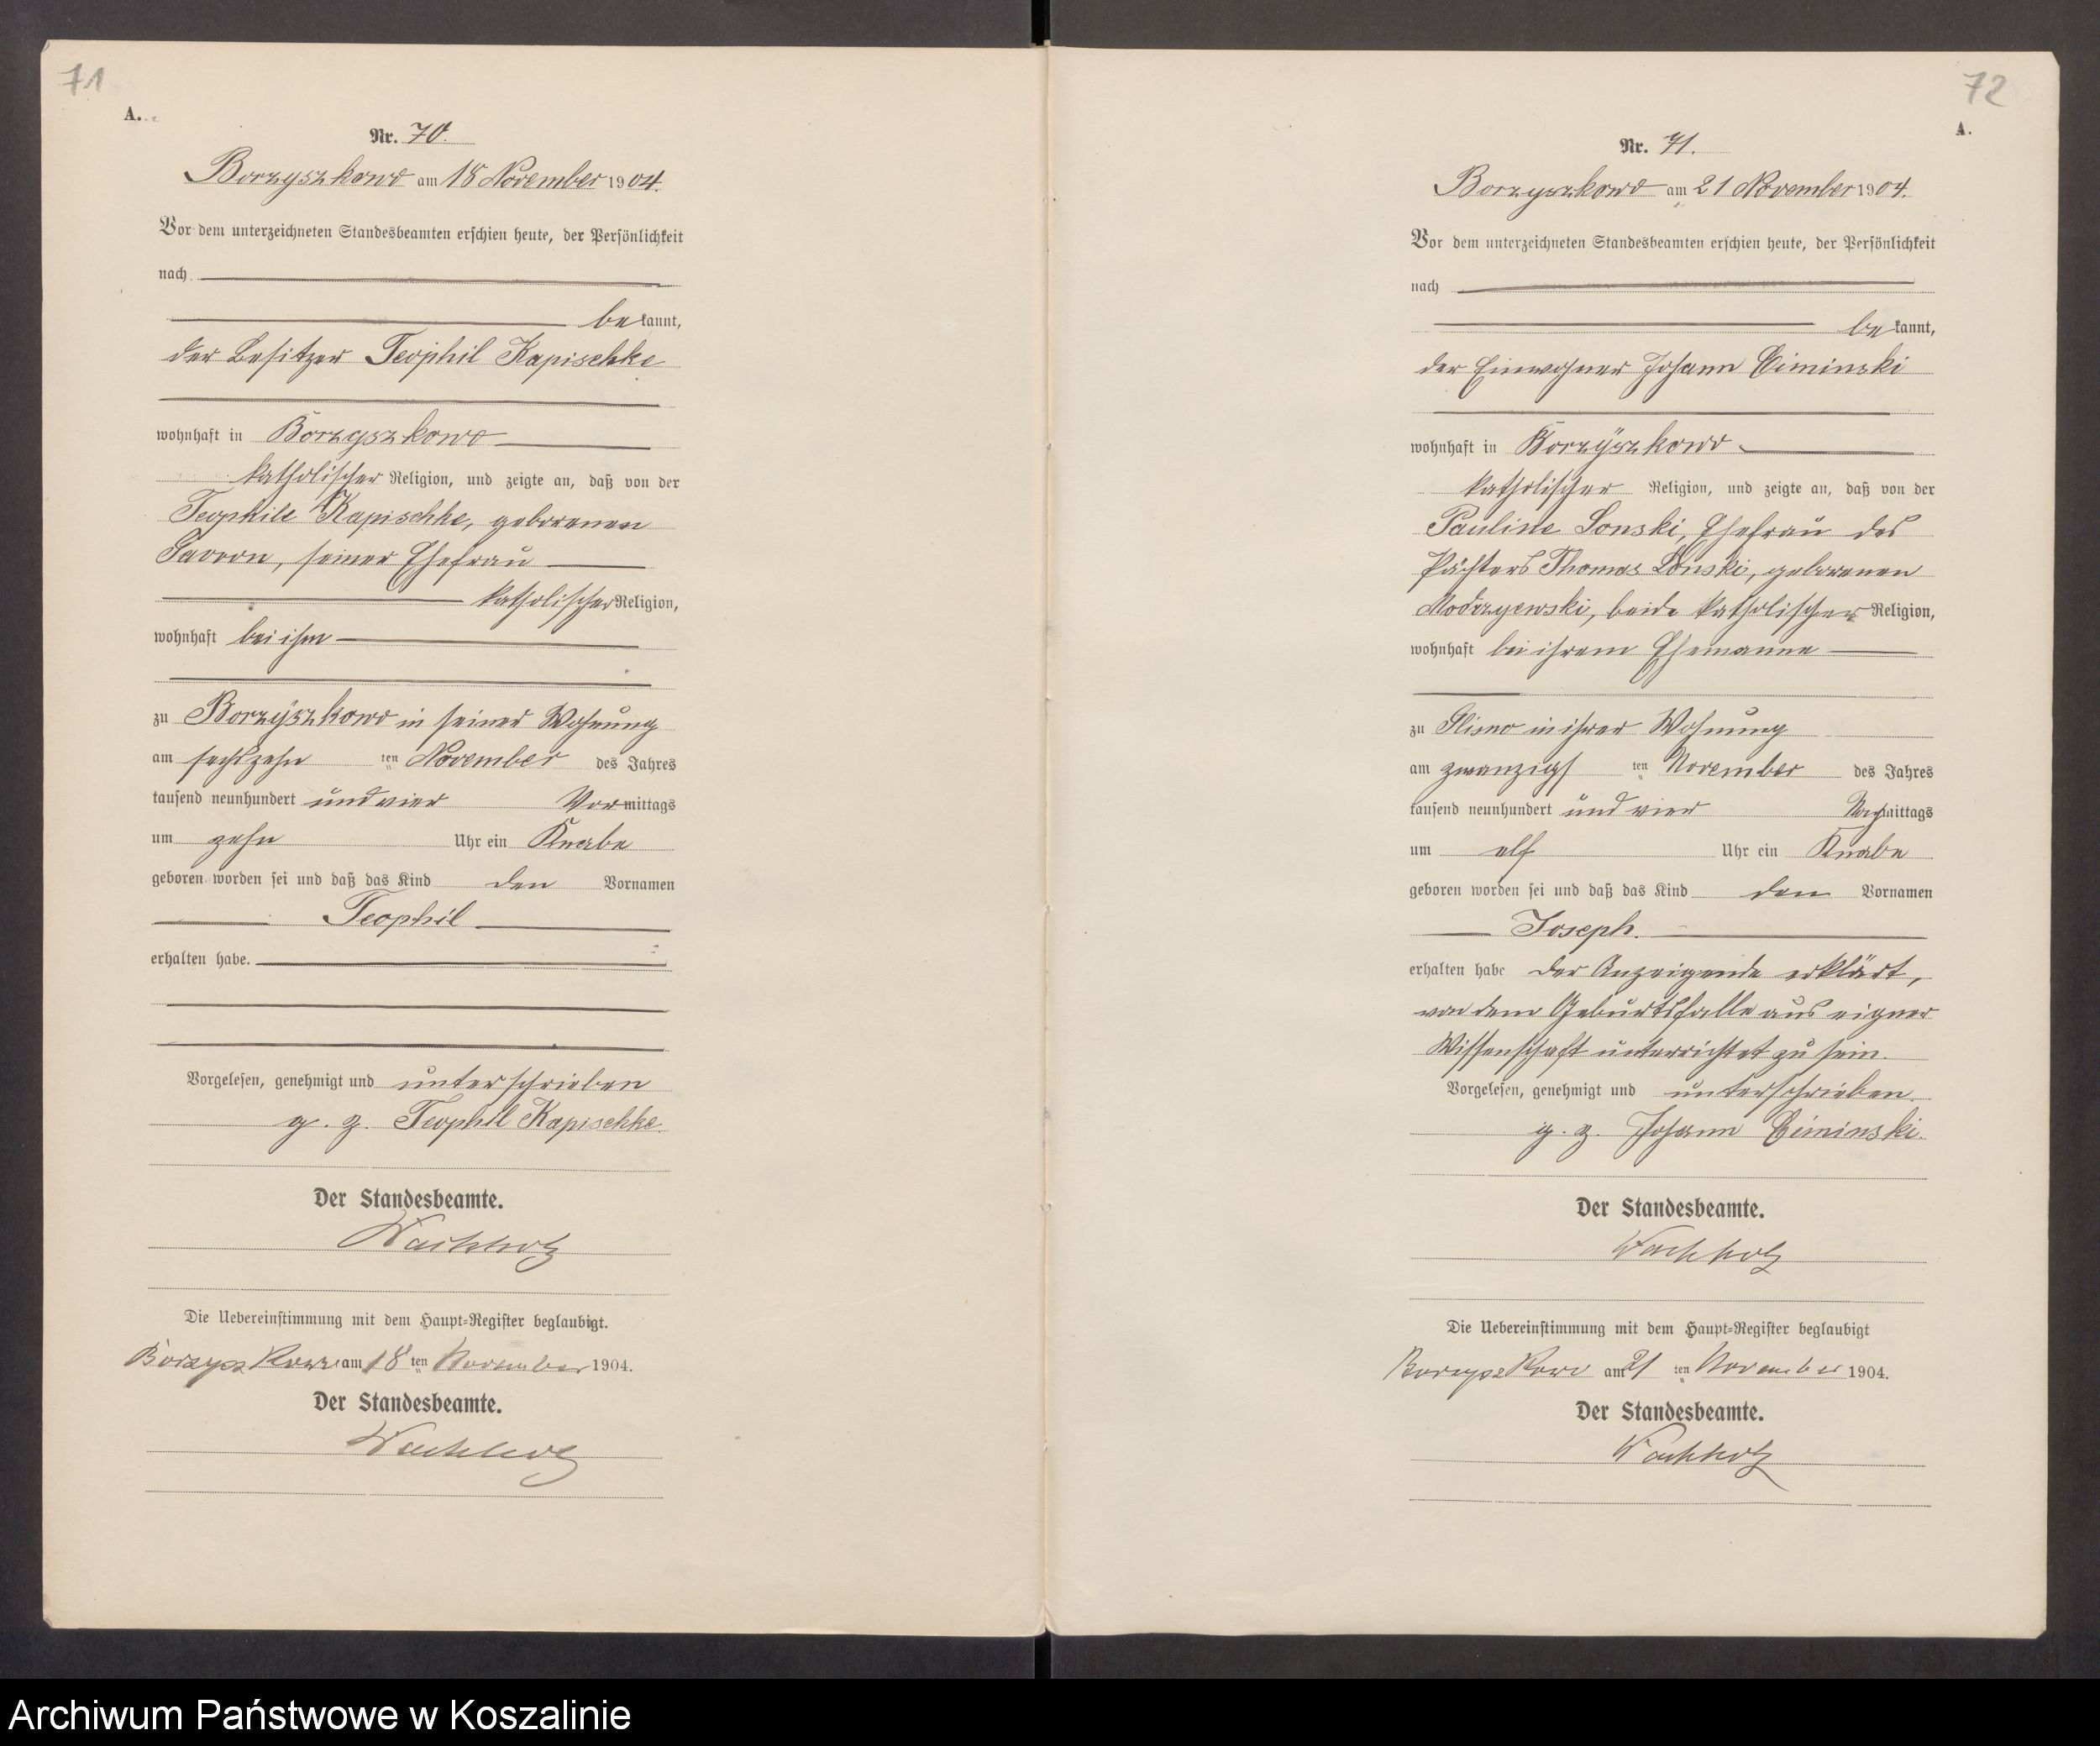 71
A.
Nr. 70.
Borzyszkowo am 18 November 1904.
Vor dem unterzeichneten Standesbeamten erschien heute, der Persönlichkeit
nach
bekannt,
der Besitzer Teophil Kapischke
wohnhaft in Borzyszkowo
katholischer Religion, und zeigte an, daß von der
Teophile Kapischke, geborenen
seiner Ehefrau
katholischer Religion,
wohnhaft bei ihm
zu Borzyszkowo in seiner Wohnung
am sechszehn ten November des Jahres
tausend neunhundert und vier Vormittags
um zehn Uhr ein Knabe
geboren worden sei und daß das Kind den Vornamen
Teophil
erhalten habe.
Vorgelesen, genehmigt und unterschrieben
g. z. Teophil Kapischke.
Der Standesbeamte.
Wachholz
Die Uebereinstimmung mit dem Haupt-Register beglaubigt.
Borzyszkowo am 18 ten November 1904.
Der Standesbeamte.
Wachholz
72
A.
Nr. 71.
Borzyszkowo am 21 November 1904.
Vor dem unterzeichneten Standesbeamten erschien heute, der Persönlichkeit
nach
bekannt,
der Einwohner Johann Ciminski
wohnhaft in Borzyszkowo
katholischer Religion, und zeigte an, daß von der
Pauline Lonski, Ehefrau des
Pächters Thomas Lonski, geborenen
Modrzyewski, beide katholischer Religion,
wohnhaft bei ihrem Ehemanne
zu Glisno in ihrer Wohnung
am zwanzigs ten November des Jahres
tausend neunhundert und vier Nachmittags
um elf Uhr ein Knabe
geboren worden sei und daß das Kind den Vornamen
Joseph.
erhalten habe Der Anzeigende erklärt,
von dem Geburtsfalle aus eigner
Wissenschaft unterrichtet zu sein.
Vorgelesen, genehmigt und unterschrieben.
g. z. Johann Ciminski.
Der Standesbeamte.
Wachholz
Die Uebereinstimmung mit dem Haupt-Register beglaubigt
Borzyszkowo am 21 ten November 1904.
Der Standesbeamte.
Wachholz
Archiwum Państwowe w Koszalinie